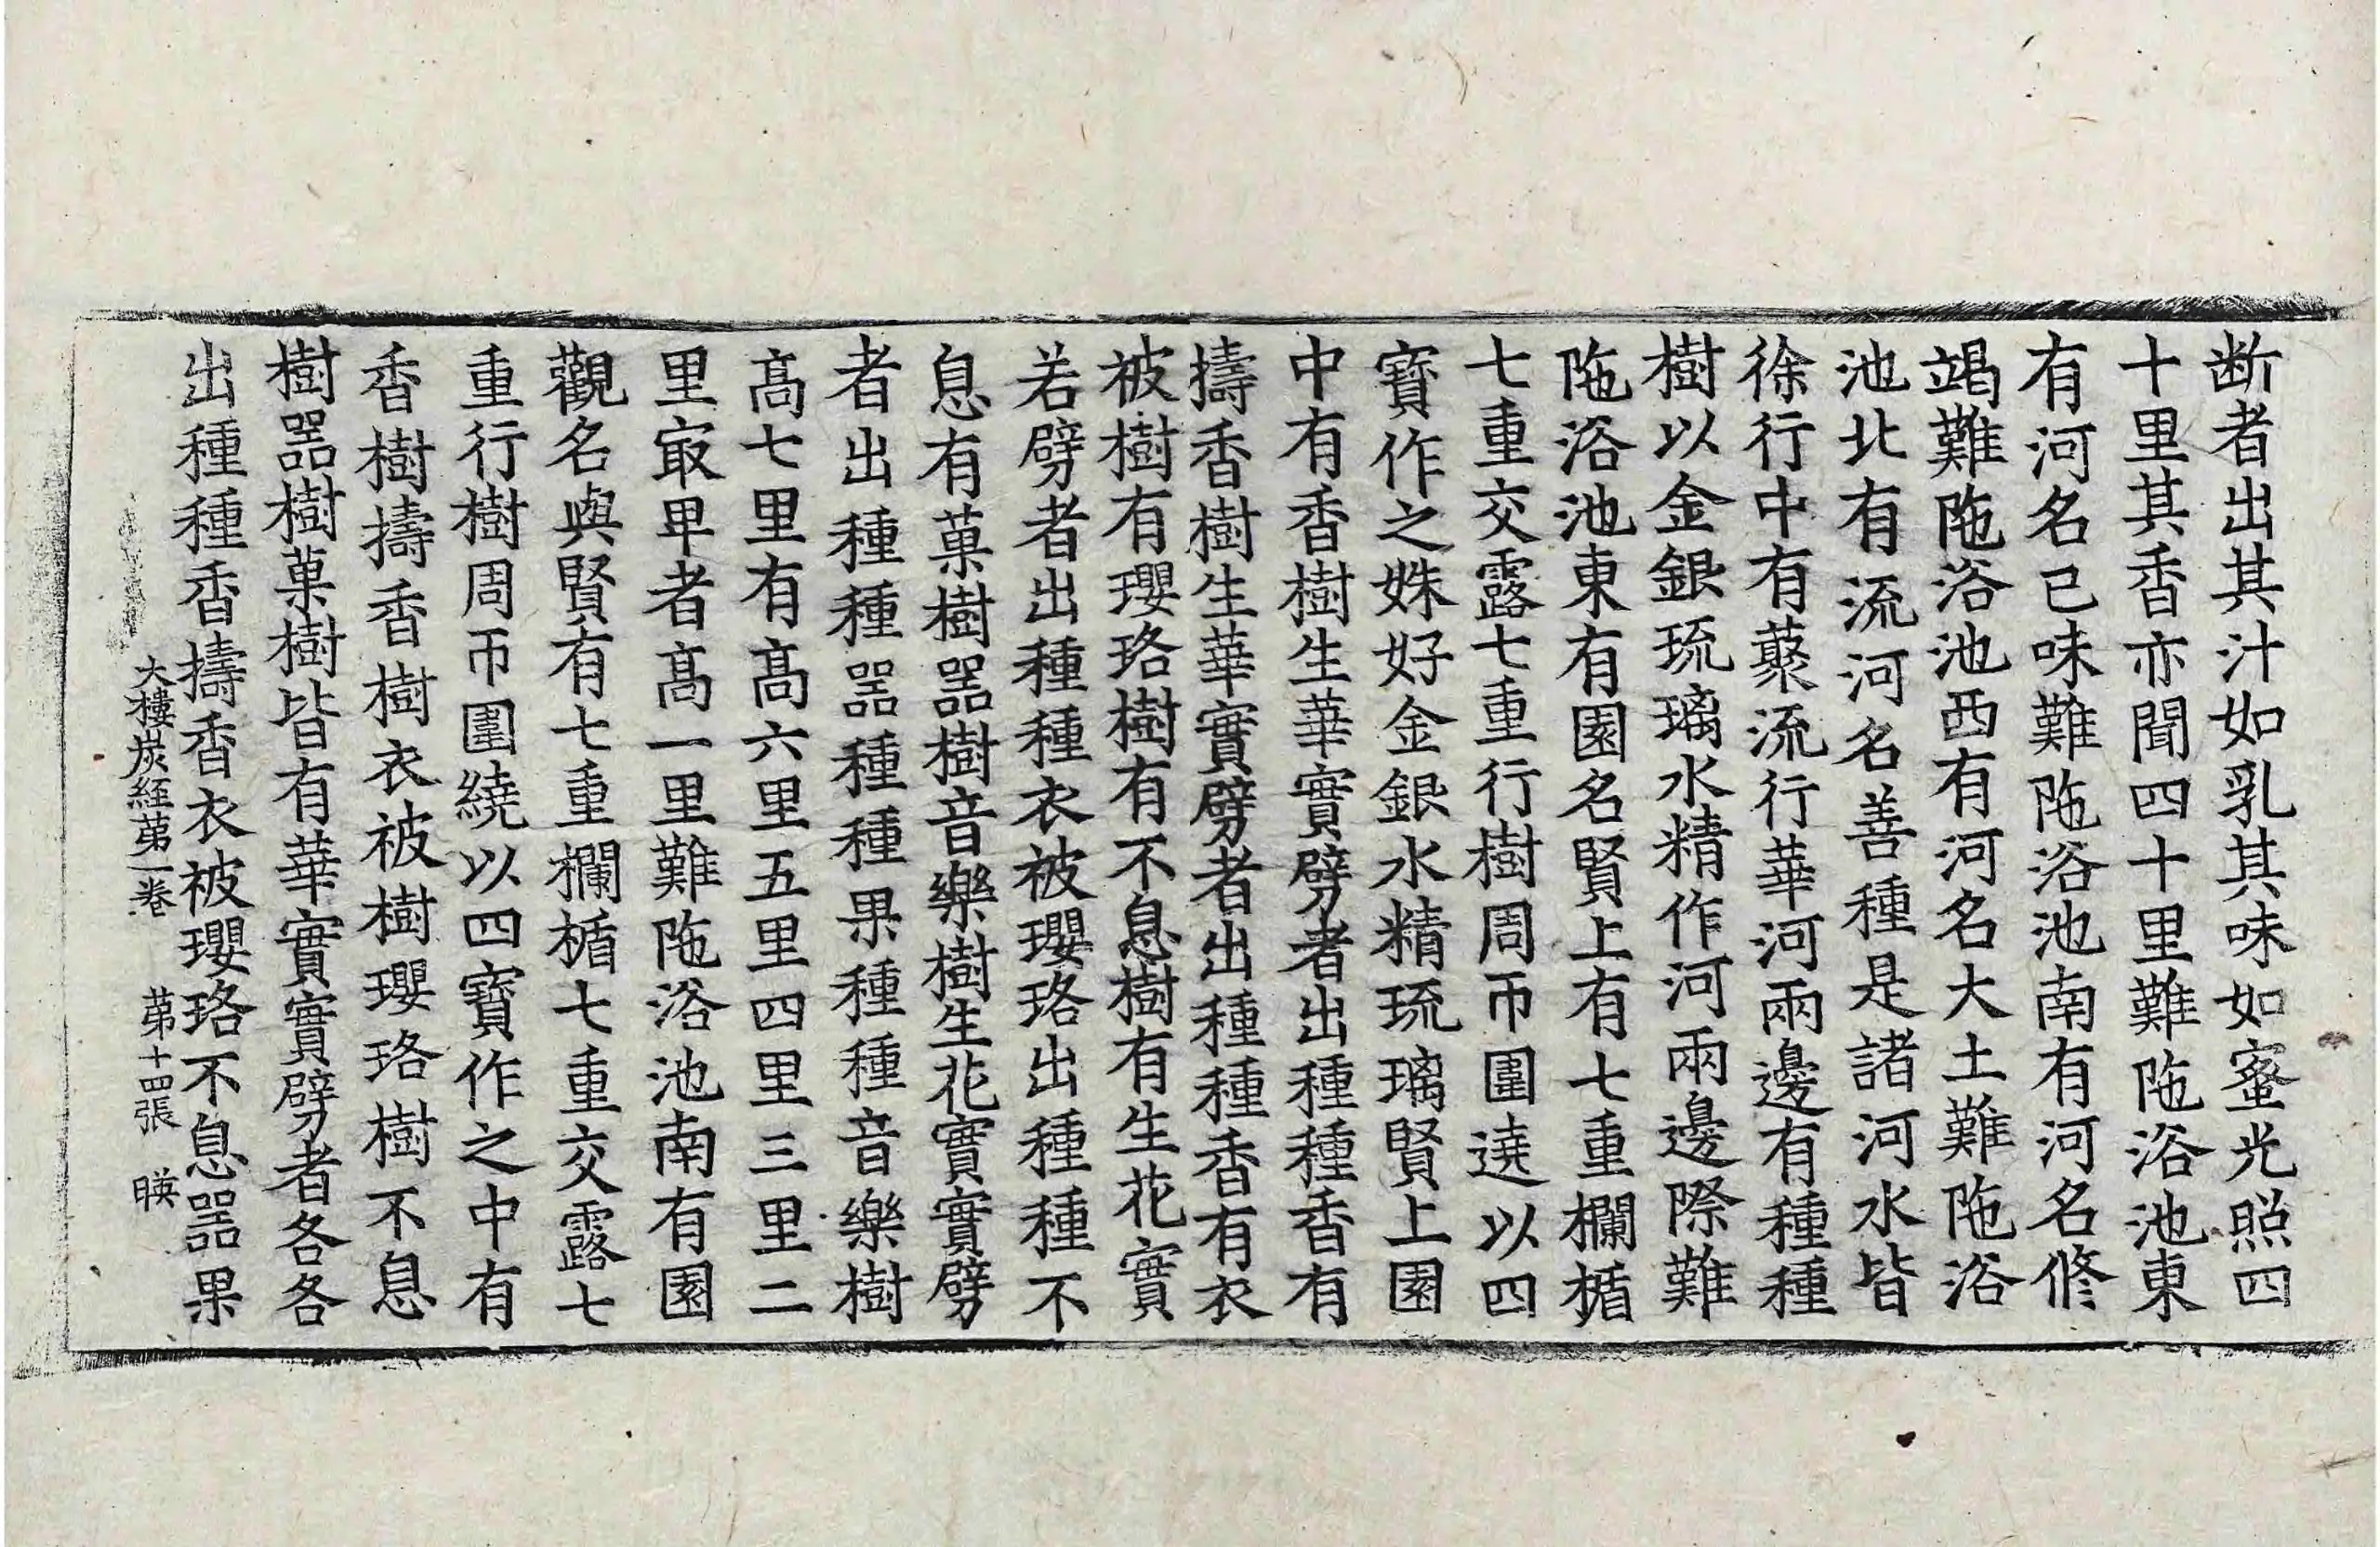 断者出其汁如乳其味如蜜光照四
十里其香亦聞四十里難陁浴池東
有河名已味難陁浴池南有河名修
竭難陁浴池西有河名大土難陁浴
池北有流河名善種是諸河水皆
徐行中有藂流行華河兩邊有種種
樹以金銀琉璃水精作河兩邊際難
陁浴池東有園名賢上有七重欄楯
七重交露七重行樹周帀圍遶以四
寶作之姝好金銀水精琉璃賢上園
中有香樹生華實劈者出種種香有
擣香樹生華實劈者出種種香有衣
被樹有瓔珞樹有不息樹有生花實
若劈者出種種衣被瓔珞出種種不
息有菓樹噐樹音樂樹生花實實劈
者出種種噐種種果種種音樂樹
髙七里有髙六里五里四里三里二
里㝡卑者髙一里難陁浴池南有園
觀名與賢有七重欄楯七重交露七
重行樹周帀圍繞以四寶作之中有
香樹擣香樹衣被樹瓔珞樹不息
樹噐樹菓樹皆有華實實劈者各各
出種種香擣香衣被瓔珞不息噐果
大樓炭經苐一卷 苐十四張 暎